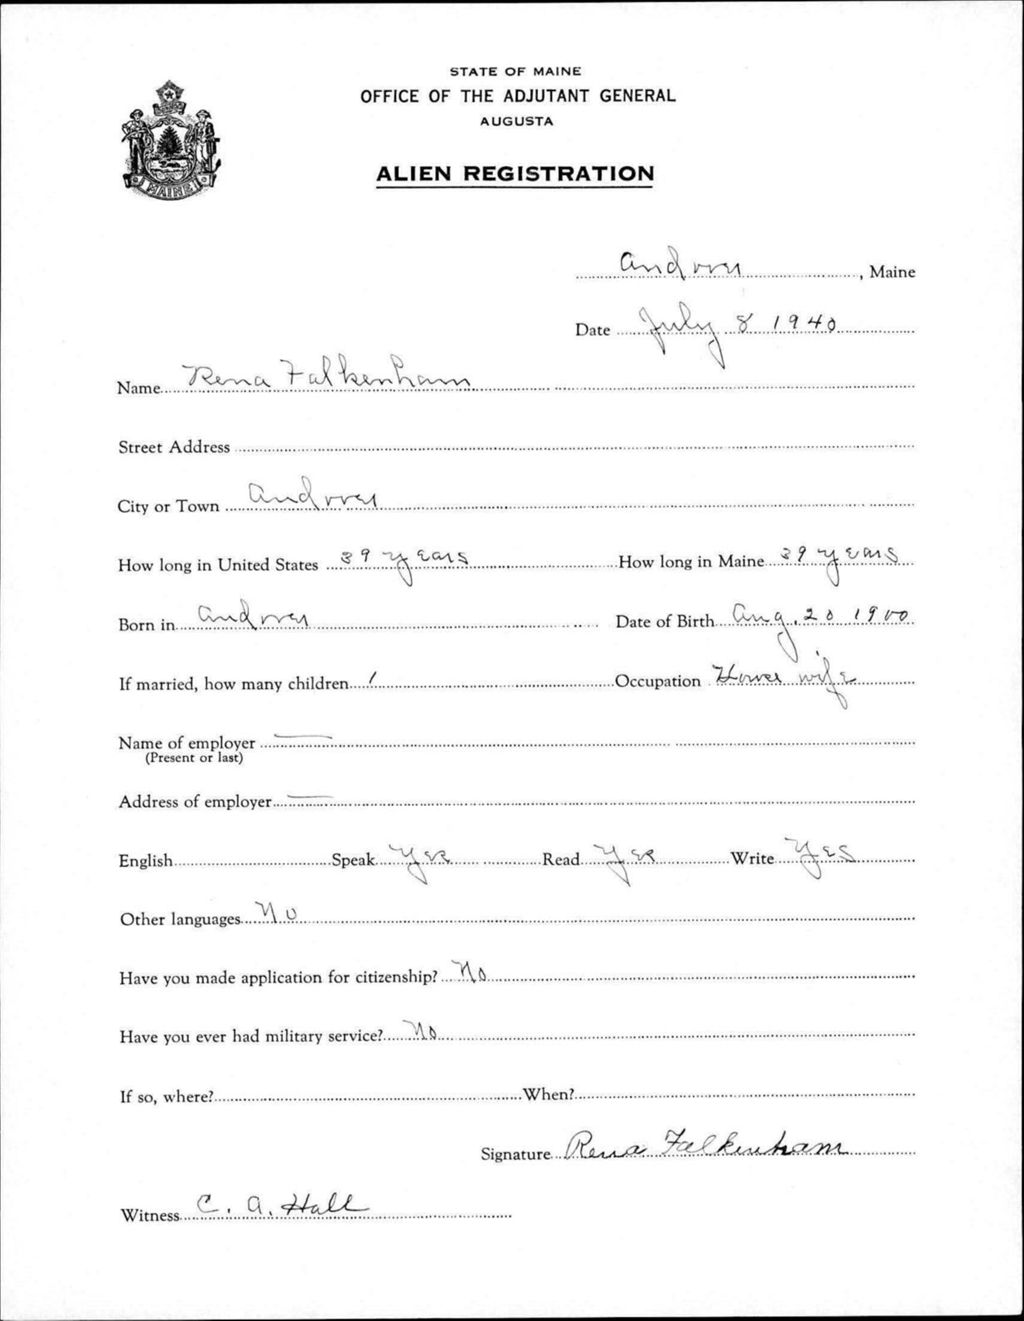 STATE OF MAINE
OFFICE OF THE ADJUTANT GENERAL
AUGUSTA
ALIEN REGISTRATION
MAINE
Andover, Maine
Date July 8 1940
Name Rena Falkenham
Street Address
City or Town Andover
How long in United States 39 years How long in Maine 39 years
Born in Andover Date of Birth Aug. 20 1900
If married, how many children 1 Occupation House wife
Name of employer —
(Present or last)
Address of employer —
English Speak Yes Read Yes Write Yes
Other languages No
Have you made application for citizenship? No
Have you ever had military service? No
If so, where? When?
Signature Rena Falkenham
Witness C. A. Hall